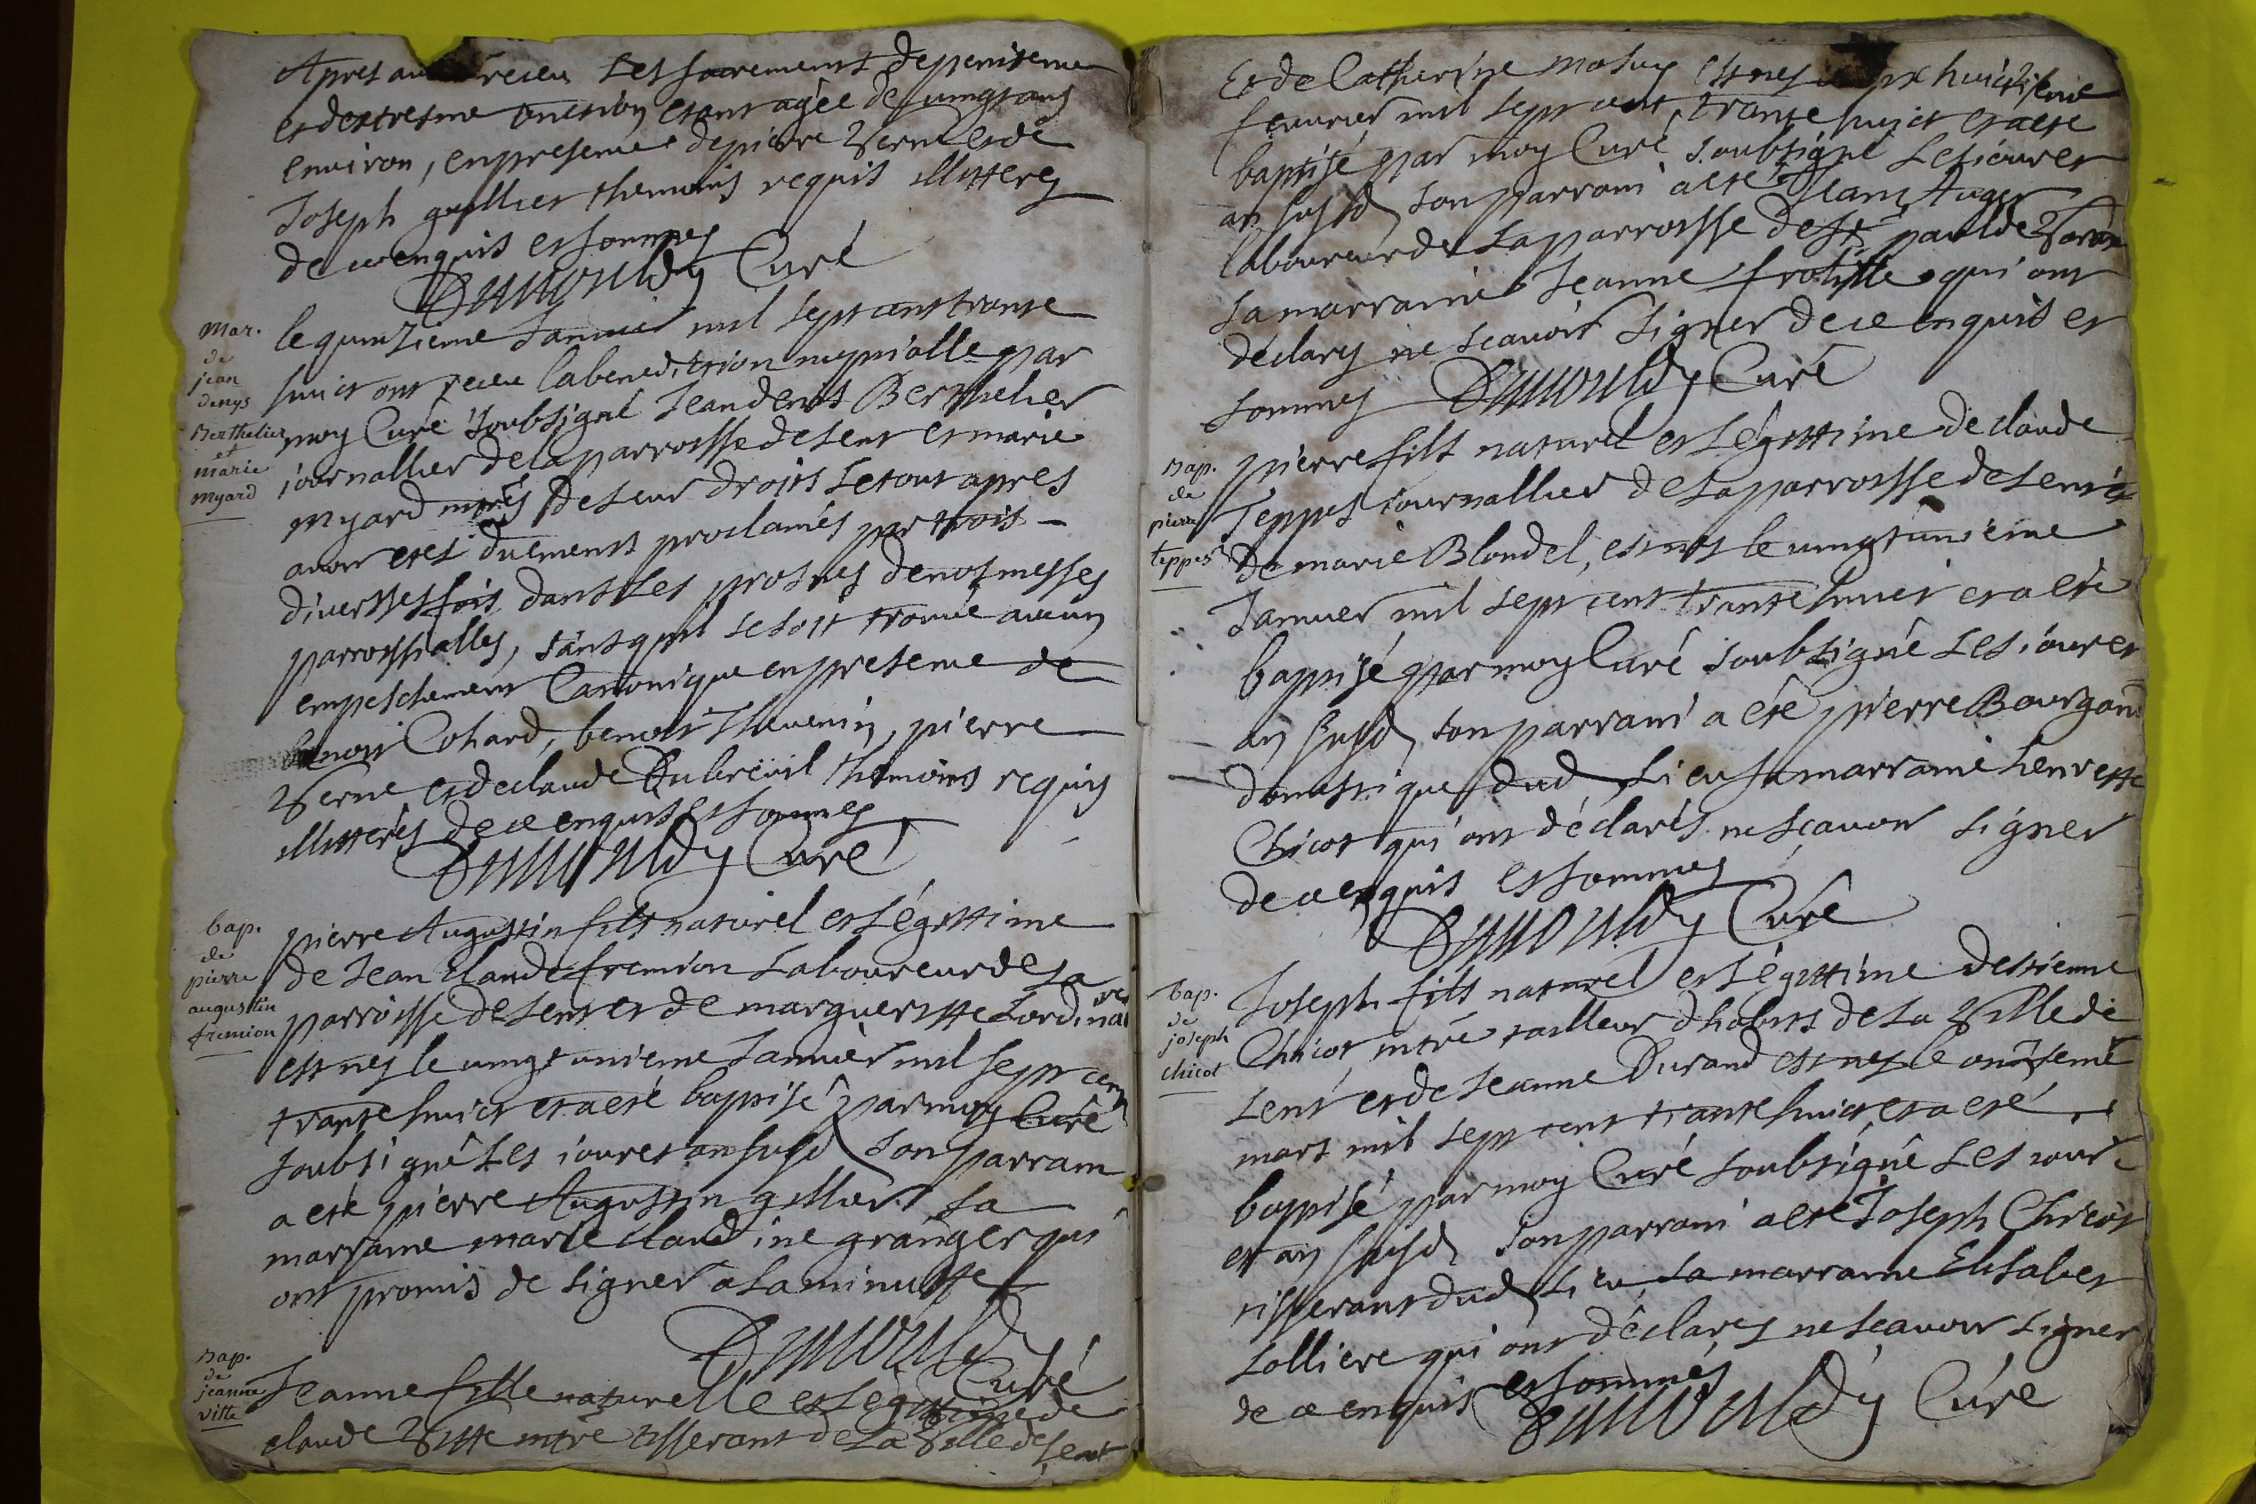 Apres receu les sacrements de penitence
et dextresme onction etant agée de vingt ans
environ, en presence de pierre Verne et de
Joseph guillier themoins requis illitteres
de ce enquis et sommes
Dumouldy Curé
mar.
de
jean
denys
Berthelier
et
marie
myard
le quinzieme Janvier mil sept cent trante
huict ont receu la benediction nuptialle par
moy Curé soubsigné Jean denis Berthelier
iournallier de la parroisse de sens et marie
myard de leur droits le tout apres
avoir etes duements proclamés par trois
diversses fois dans les prosnes de nos messes
parroissialles, sans quil se soit trouvé aucun
empeschement Canonique en presence de
benoit Cohard, benoit Thevenin, pierre
Verne et de claude Dubreuil themoins requis
illitterés de ce enquis et sommes
Dumouldy Curé
bap.
de
pierre
augustin
fremion
pierre Augustin fils naturel et légittime
de Jean Claude fremion Laboureur de la
parroisse de sens et de margueritte
est nes le vingt unieme Janvier mil sept cent
trante huict et a eté baptisé par moy Curé
soubsigné les iour et an susd son parrain
a eté pierre Augustin gillier sa
marraine marie claudine granger qui
ont promis de signer a la minutte
Dumouldy
Curé
Bap.
de
jeanne
vitte
Jeanne fille naturelle et légittime de
claude Vitte mtre tisserant de la Ville de sens
Et de Catherine est nes huictieme
fevurier mil sept cent trante huict et a eté
baptisé par moy Curé soubsigné les iour et
an susd son parrain a eté Jean Auger
laboureur de la parroisse de st paul de
sa marraine Jeanne qui ont
déclarés ne scavoir signer de ce enquis et
sommes Dumouldy Curé
Bap.
de
pierre
teppes
pierre fils naturel et légittime de claude
Teppes iournallier de la parroisse de sens et
de marie Blondel, est nes le vingt unieme
Janvier mil sept cent trante huict et a eté
baptisé par moy Curé soubsigné les iour et
an susd son parrain a eté pierre
domestique dud lieu sa marraine henriette
Chicot qui ont déclarés ne sçavoir signer
de ce enquis et sommes
Dumouldy Curé
bap.
de
joseph
chicot
Joseph fils naturel et légittime destienne
Chicot mtre tailleur dhabits de la Ville de
sens et de Jeanne Durand est nes le onzieme
mars mil sept cent trante huict et a eté
baptisé par moy Curé soubsigné les iour
et an susd son parrain a eté Joseph Chicot
tisserant dud lieu sa marraine Elisabet
Lolliere qui ont déclarés ne scavoir signer
de ce enquis et sommés
Dumouldy Curé